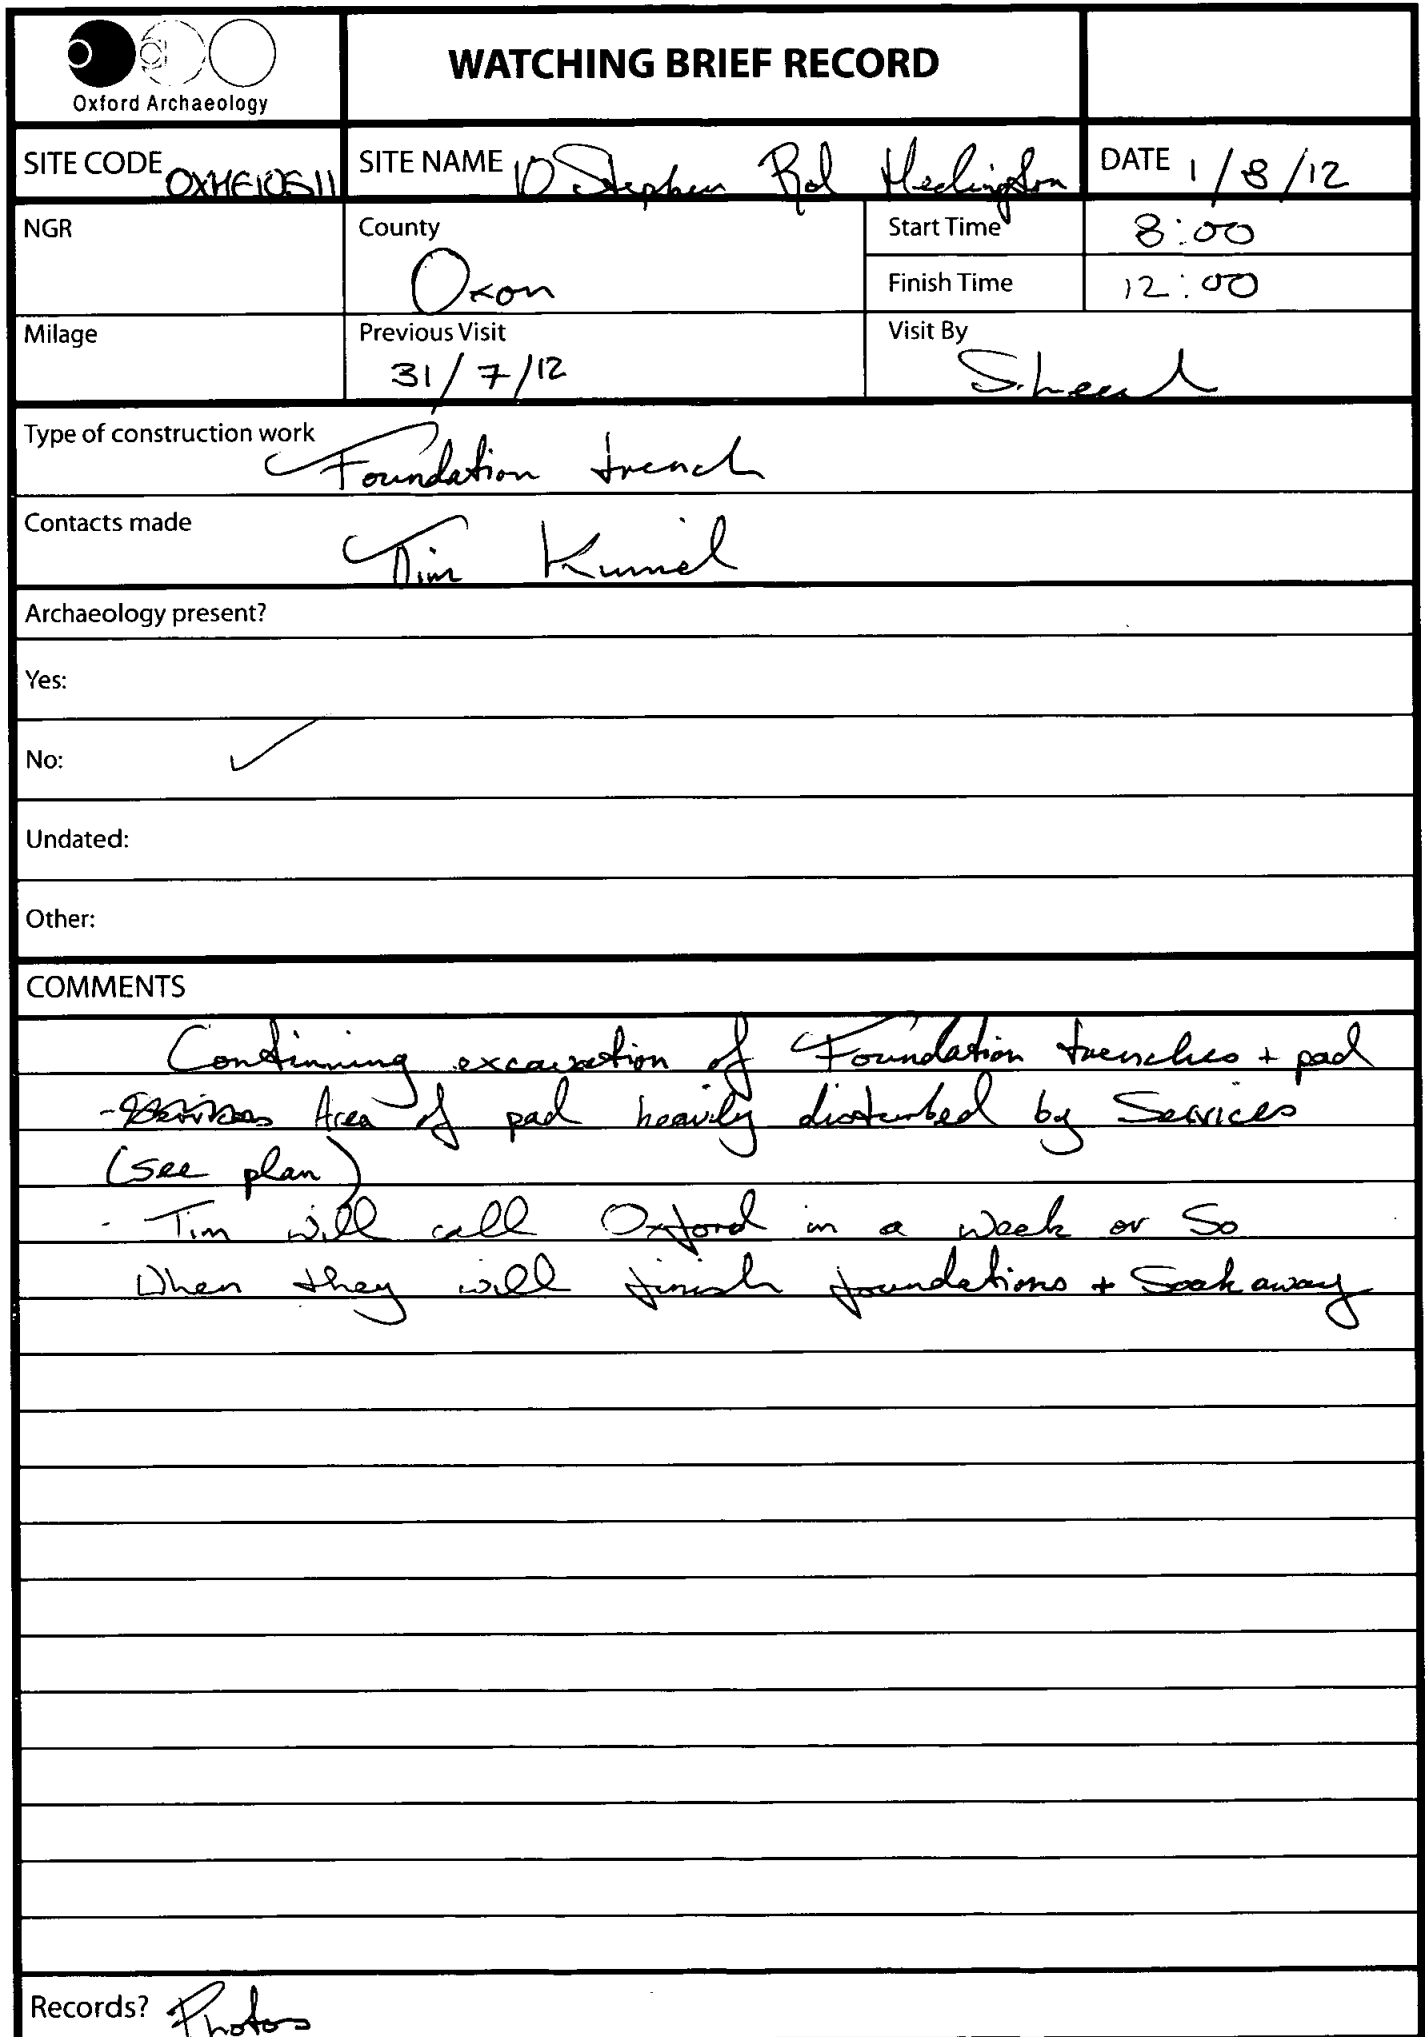 Oxford Archaeology
WATCHING BRIEF RECORD
SITE CODE OXHE10511
SITE NAME 10 Stephen Rd Hedington
DATE 1/8/12
NGR
County
Oxon
Start Time 8:00
Finish Time 12:00
Milage
Previous Visit
31/7/12
Visit By
Type of construction work Foundation trench
Contacts made Tim
Archaeology present?
Yes:
No: ✓
Undated:
Other:
COMMENTS
Continuing excavation of Foundation trenches + pad
- Services Area of pad heavily disturbed by Services
(see plan)
- Tim will call Oxford in a week or So
When they will finish foundations + Soak away
Records? Photos